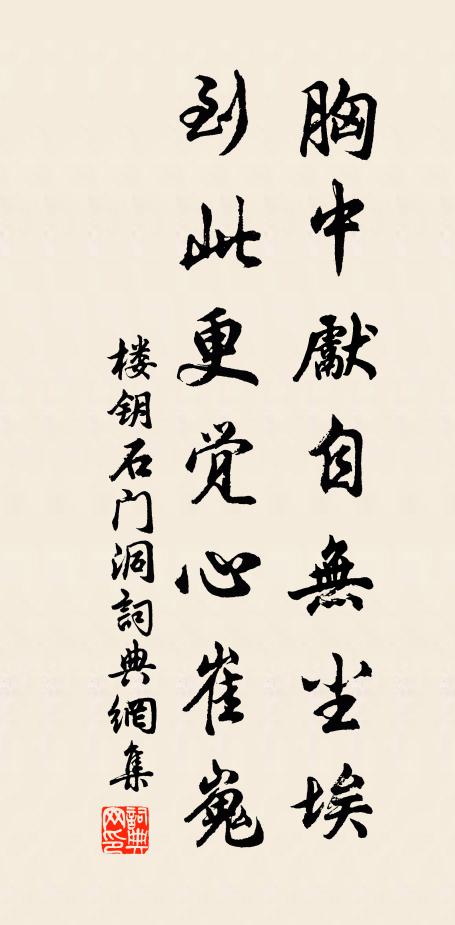 胸中獻自無尘埃
到此更觉心崔嵬
楼钥石门洞詞典網集
詞典网印